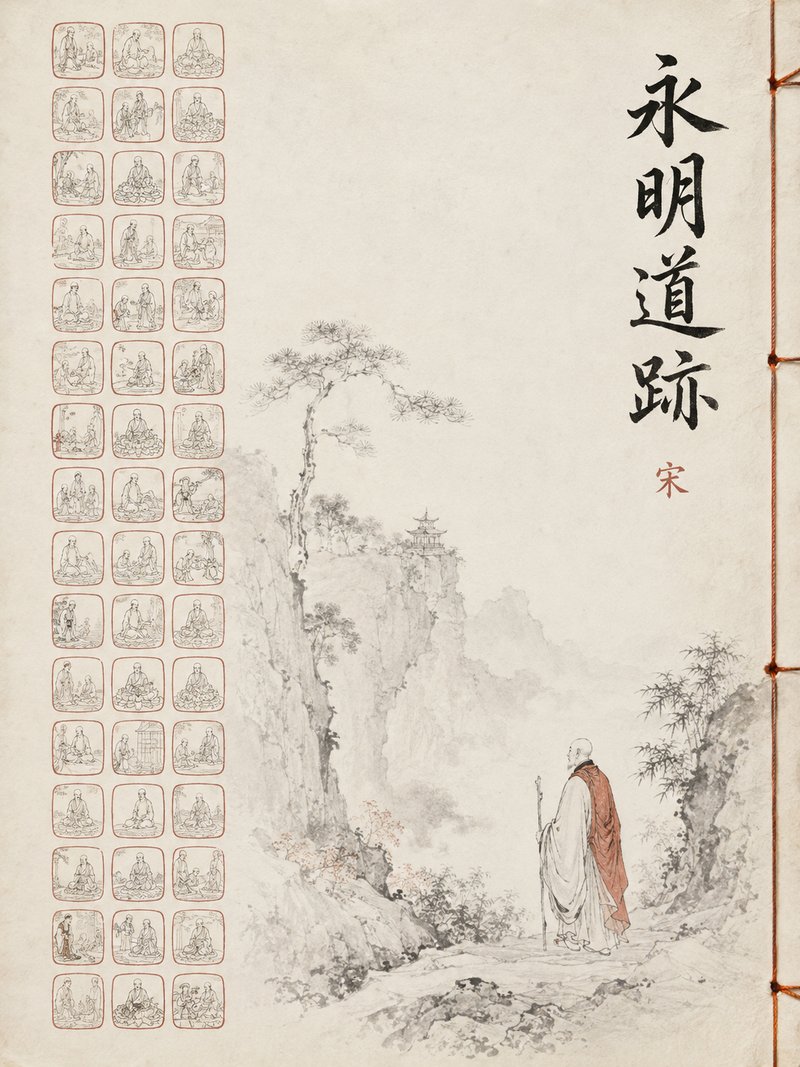 永明道跡
宋